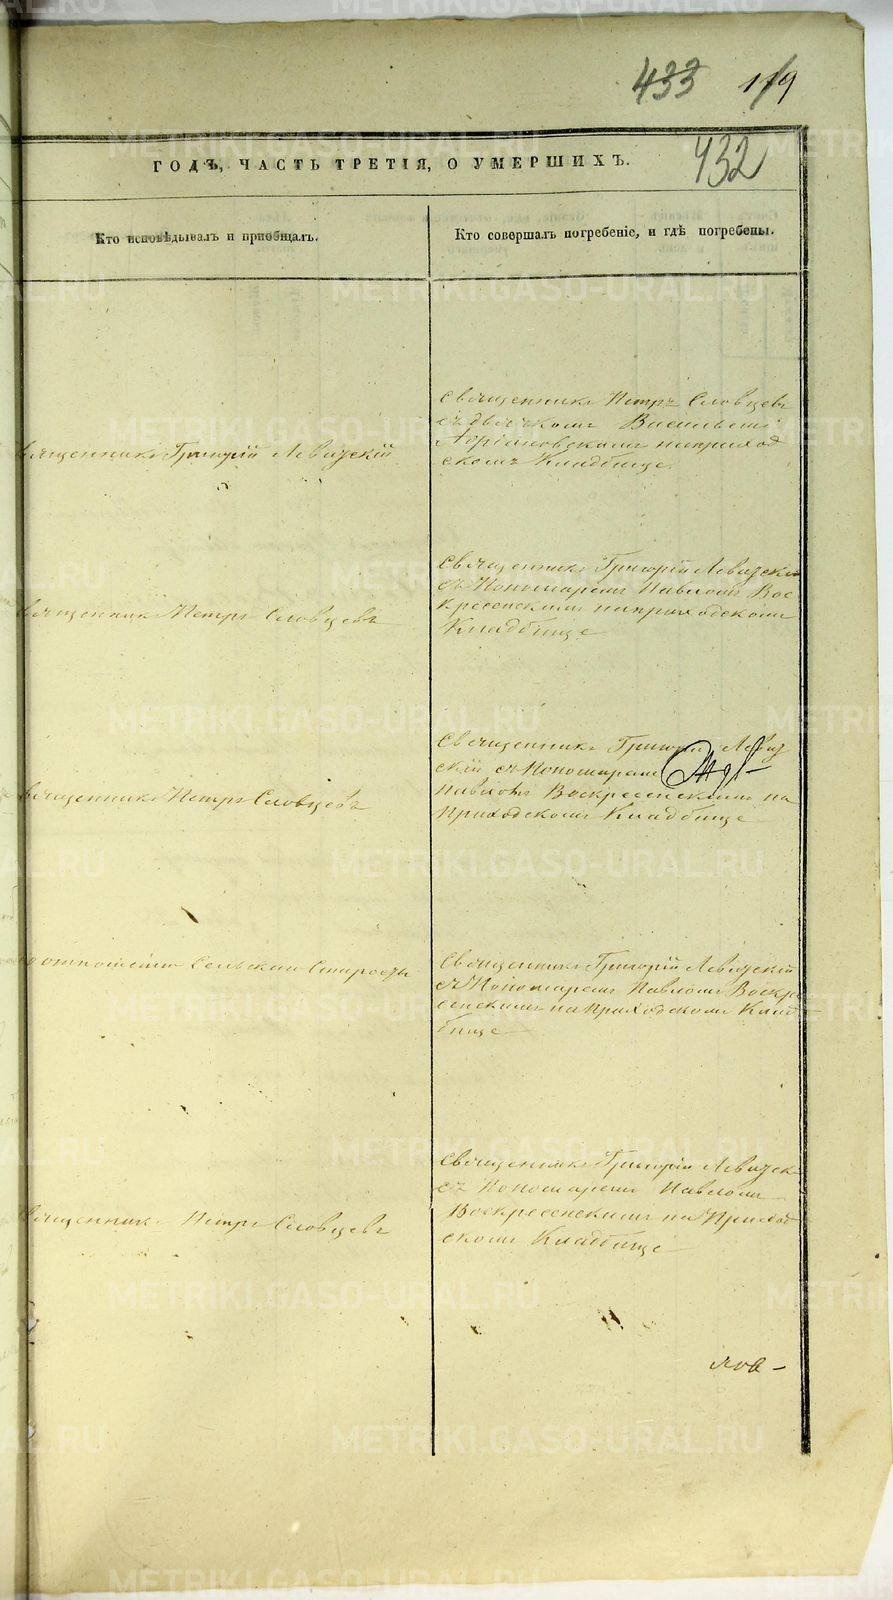 433 119
432
ГОДЪ, ЧАСТЬ ТРЕТІЯ, О УМЕРШИХЪ.
Кто исповѣдывалъ и пріобщалъ.
Кто совершалъ погребеніе, и гдѣ погребены.
Священникъ Григорій Левицкій
Священникъ Петръ Словцевъ
съ дьячкомъ Васильемъ
Адріановскимъ на приход
скомъ Кладбище.
Священникъ Петръ Словцевъ
Священникъ Григорій Левицкій
съ Пономаремъ Павломъ Вос
кресенскимъ на приходскомъ
Кладбище
Священникъ Петръ Словцевъ
Священникъ Григорій Левиц
кій съ Пономаремъ
Павломъ Воскресенскимъ на
Приходскомъ Кладбище
По отношенію Сельскаго Старосты
Священникъ Григорій Левицкій
съ Пономаремъ Павломъ Воскре
сенскимъ на Приходскомъ Клад
бище
Священникъ Петръ Словцевъ
Священникъ Григорій Левицк
съ Пономаремъ Павломъ
Воскресенскимъ на Приход
скомъ Кладбище
METRIKI.GASO-URAL.RU